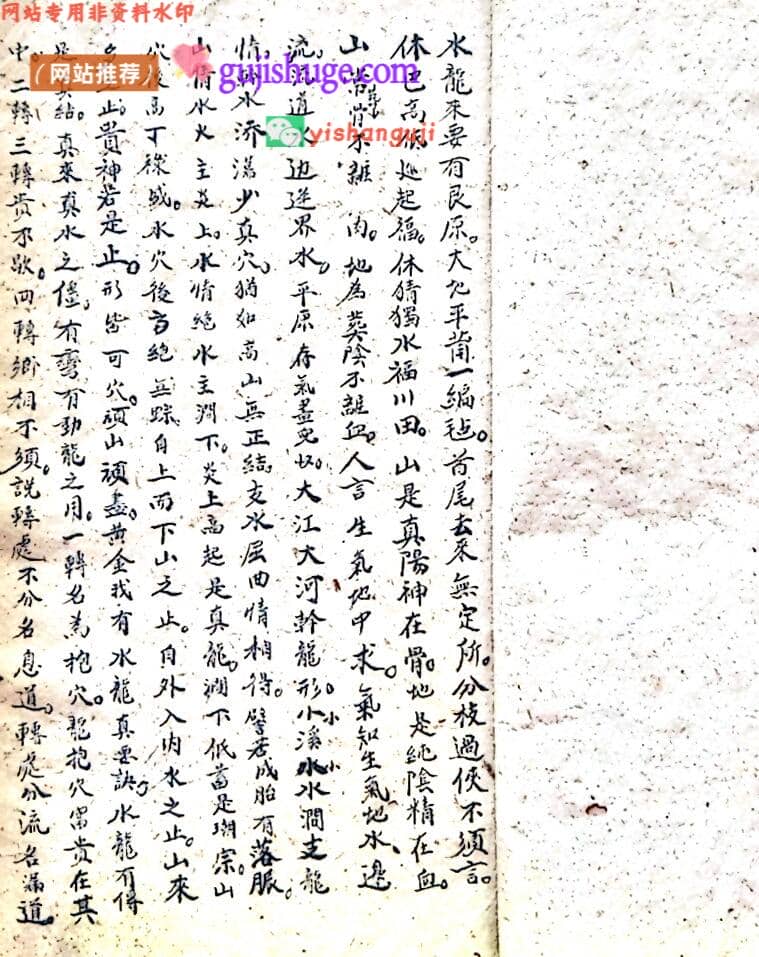 网站专用非资料水印
（网站推荐）
gujishuge.com
yishanguji
水龍來要有艮原。大地平莆一編毡。首尾去來無定所。分枝過俠不須言。
休巳高低起福。休猜獨水福川田。山是真陽神在骨。地是純陰精在血。
山當不離肉。地為葵陰不離血。人言生氣地甲求。氣知生氣地水邊
流道水边逆界水。平原存氣盡。大江大河幹龍形。小溪小水澗支龍
情水少真穴。猶如高山無正結。支水屈曲情相得。譬若成胎有落脈。
山情水火主炎上。水情絶水主潤下。炎上高起是真龍。潤下低蓄是朝宗。山
穴後高丁祿盛。水穴後高絶無踪。自上而下山之止。自外入内水之止。山來
止。貴神若是止。形皆可穴。頑山頑盡黄金我有水龍真要訣水龍有得
結。真來真水之。有彎有動龍之用。一轉名為抱穴。龍抱穴富贵在其
中。二轉三轉贵不歇。四轉鄉相不須。説轉處不分名息道。轉處分流名漏道。